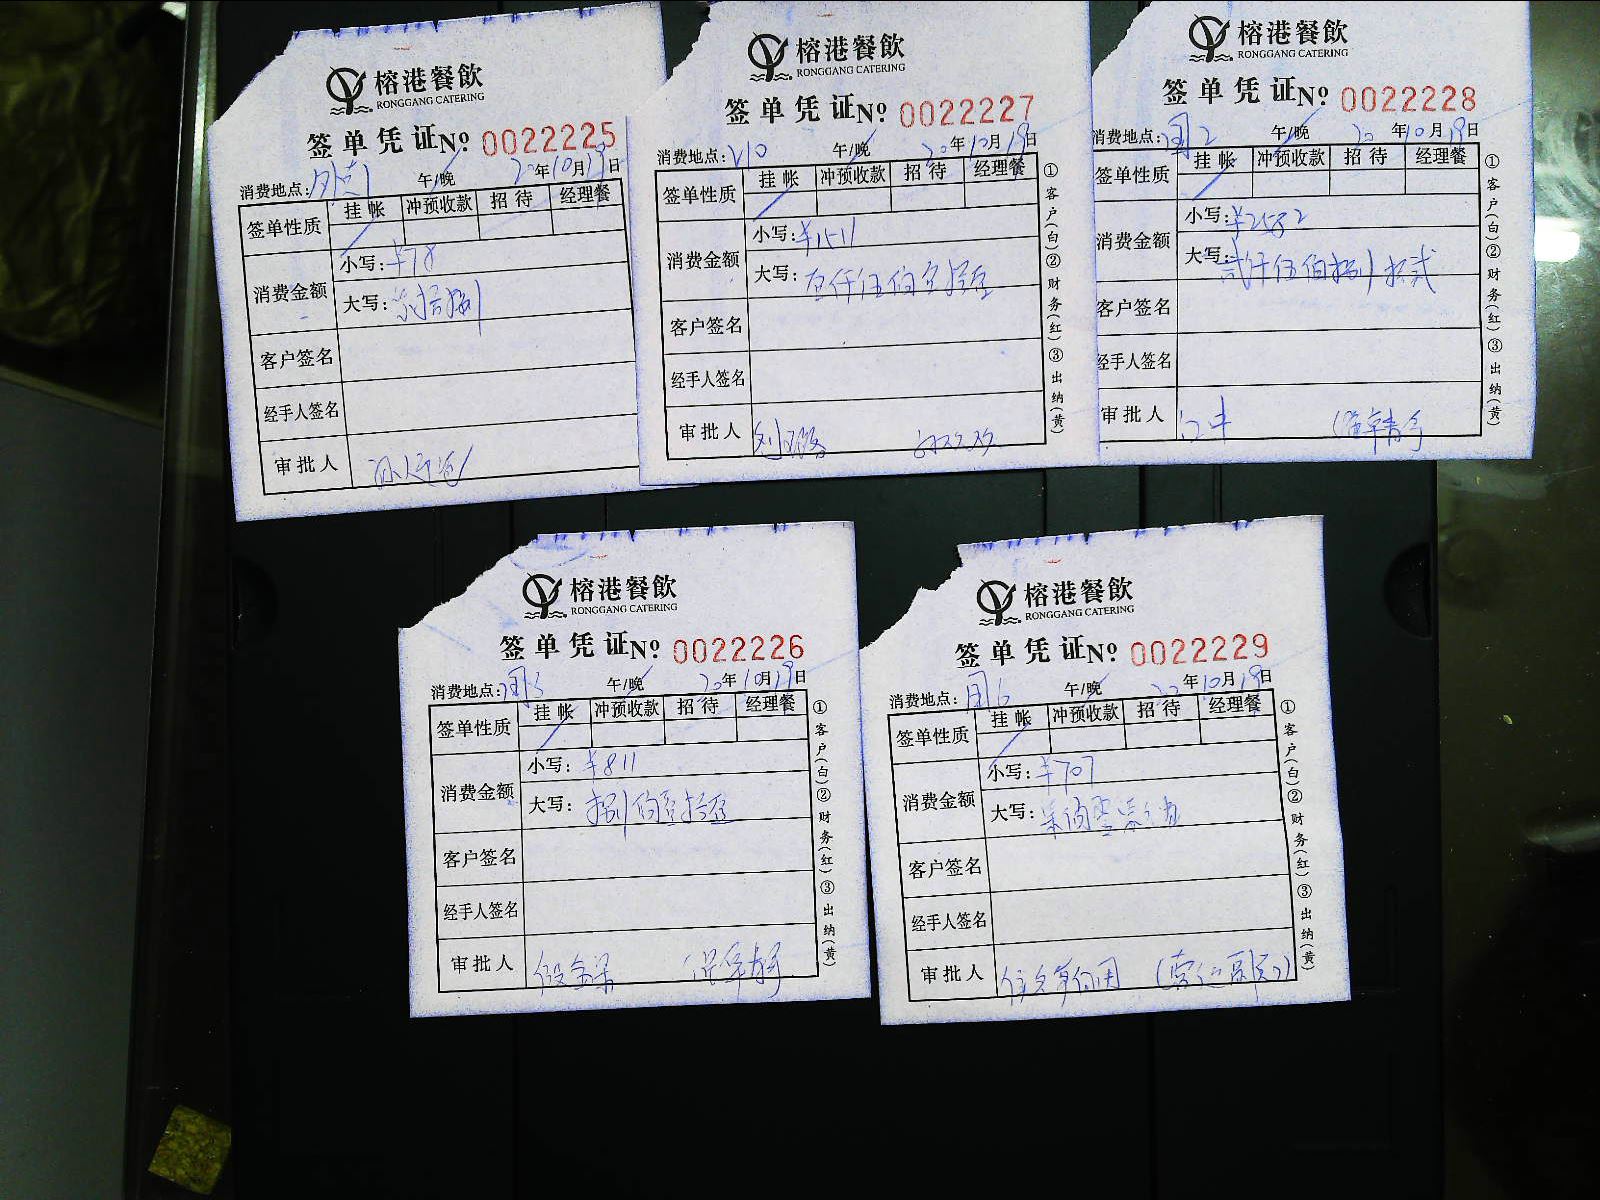 榕港餐飲
RONGGANG CATERING
签单凭证№ 0022225
消费地点: 午/晚 20年10月19日
签单性质 挂帐 冲预收款 招待 经理餐
消费金额
小写:¥78
大写:柒拾捌
客户签名
经手人签名
审批人
榕港餐飲
RONGGANG CATERING
签单凭证№ 0022227
消费地点:V10 午/晚 20年10月19日
签单性质 挂帐 冲预收款 招待 经理餐
消费金额
小写:¥1511
大写:壹仟伍佰壹拾壹
客户签名
经手人签名
审批人
①客户(白)②财务(红)③出纳(黄)
榕港餐飲
RONGGANG CATERING
签单凭证№ 0022228
消费地点:阁2 午/晚 20年10月19日
签单性质 挂帐 冲预收款 招待 经理餐
消费金额
小写:¥2582
大写:贰仟伍佰捌拾贰
客户签名
经手人签名
审批人
①客户(白)②财务(红)③出纳(黄)
榕港餐飲
RONGGANG CATERING
签单凭证№ 0022226
消费地点:阁5 午/晚 20年10月19日
签单性质 挂帐 冲预收款 招待 经理餐
消费金额
小写:¥811
大写:捌佰壹拾壹
客户签名
经手人签名
审批人
①客户(白)②财务(红)③出纳(黄)
榕港餐飲
RONGGANG CATERING
签单凭证№ 0022229
消费地点:阁6 午/晚 20年10月19日
签单性质 挂帐 冲预收款 招待 经理餐
消费金额
小写:¥707
大写:柒佰零柒
客户签名
经手人签名
审批人
①客户(白)②财务(红)③出纳(黄)